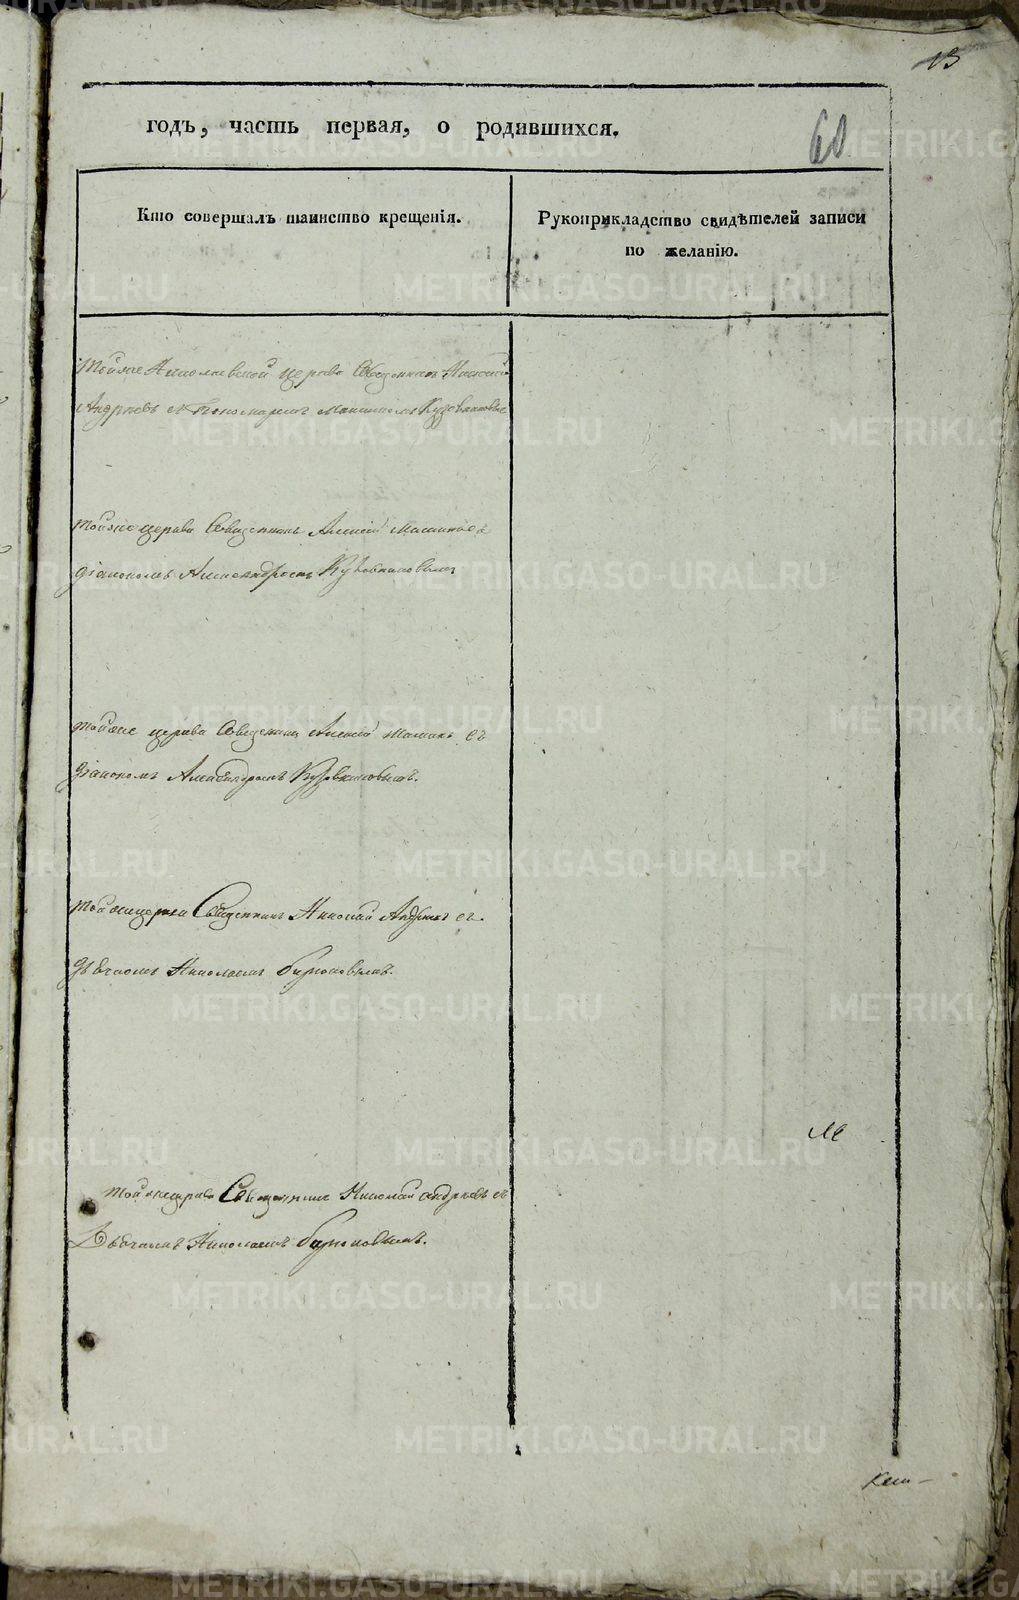 13
годъ, часть первая, о родившихся.
60
Кто совершалъ таинство крещенія.
Рукоприкладство свидѣтелей записи
по желанію.
Тойже Николаевской церкви Священникъ Николай
Андреевъ съ Пономаремъ Кузовниковы
тойже церкви Священникъ Алексій Маминъ съ
діакономъ Александромъ Кузовниковымъ
тойже церкви Священникъ Алексій Маминъ съ
діакономъ Александромъ Кузовниковымъ.
тойже церкви Священникъ Николай Андреевъ съ.
дьячкомъ Николаемъ Бирюковымъ.
тойже церкви Священникъ Николай Андреевъ съ
Дьячкомъ Николаемъ Бирюковымъ.
METRIKI.GASO-URAL.RU